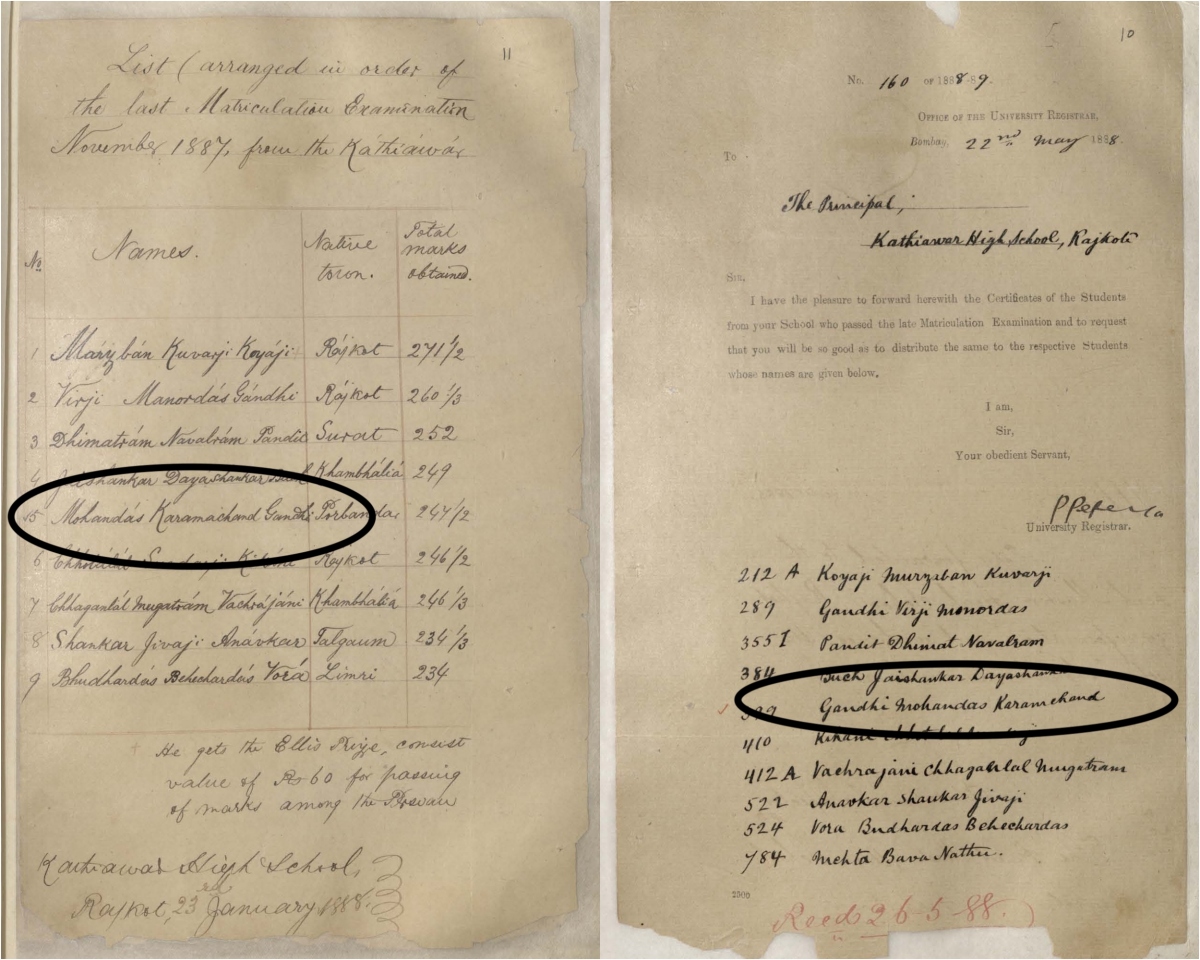 11
List (arranged in order of
the last Matriculation Examination
November 1887, from the Káthiáwár
No Names. Native town. Total marks obtained.
1 Marzbán Kuvarji Koyáji Rájkot 271 1/2
2 Virji Manordás Gándhi Rájkot 260 1/3
3 Dhimatrám Navalrám Pandit Surat 252
4 Jaishankar Dayashankar Buch Khambháliá 249
5 Mohandás Karamachand Gandhi Porbandar 247 1/2
6 Rajkot 246 1/2
7 Chhaganlál Mugatrám Vachrájáni Khambháliá 246 1/3
8 Shankar Jivaji Anávkar Talgaum 234 1/3
9 Bhudhardás Behechardás Vorá Limri 234
He gets the Ellis Prize, consist
value of Rs 60 for passing
of marks among the
Kathiawar High School,
Rajkot, 23rd January, 1888.
10
No. 160 of 1888-89.
Office of the University Registrar,
Bombay, 22nd May 1888.
To
The Principal,
Kathiawar High School, Rajkot
Sir,
I have the pleasure to forward herewith the Certificates of the Students
from your School who passed the late Matriculation Examination and to request
that you will be so good as to distribute the same to the respective Students
whose names are given below.
I am,
Sir,
Your obedient Servant,
University Registrar.
212 A Koyaji Murzaban Kuvarji
289 Gandhi Virji Monordas
355 I Pandit Dhimat Navalram
384 Buch Jaishankar Dayashankar
Gandhi Mohandas Karamchand
410
412 A Vachrajani Chhaganlal Mugatram
522 Anavkar Shankar Jivaji
524 Vora Budhardas Behechardas
784 Mehta Bava Nathu.
2500
Recd 26-5-88.